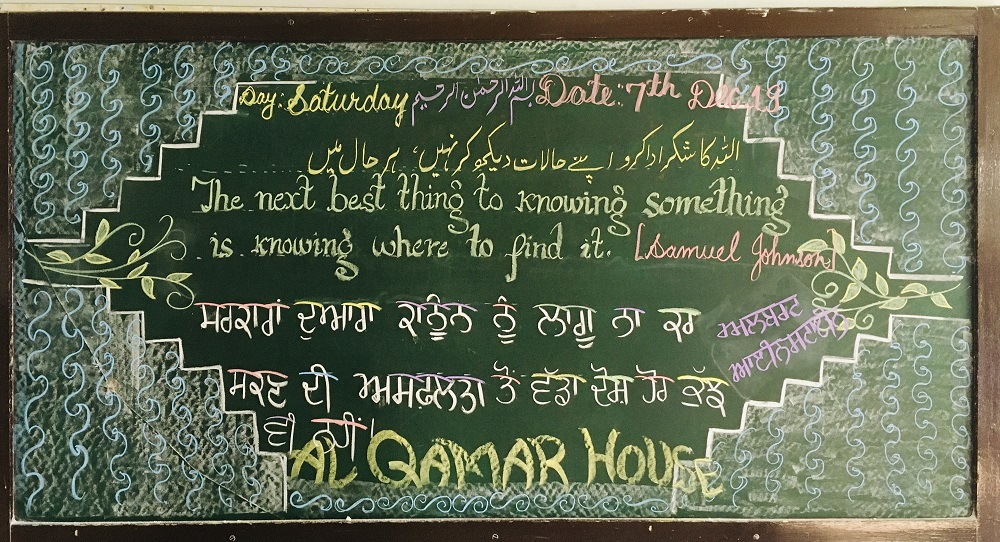 Day: Saturday بسم اللہ الرحمٰن الرحیم Date: 7th Dec, 13
اللہ کا شکر ادا کرو اپنے حالات دیکھ کر نہیں، ہر حال میں
The next best thing to knowing something
is knowing where to find it. [Samuel Johnson]
ਸਰਕਾਰਾਂ ਦੁਆਰਾ ਕਾਨੂੰਨ ਨੂੰ ਲਾਗੂ ਨਾ ਕਰ
ਸਕਣ ਦੀ ਅਸਫ਼ਲਤਾ ਤੋਂ ਵੱਡਾ ਦੋਸ਼ ਹੋਰ ਕੁੱਝ
ਵੀ ਨਹੀਂ।
ਅਲਬਰਟ
ਆਈਨਸਟਾਈਨ
AL QAMAR HOUSE